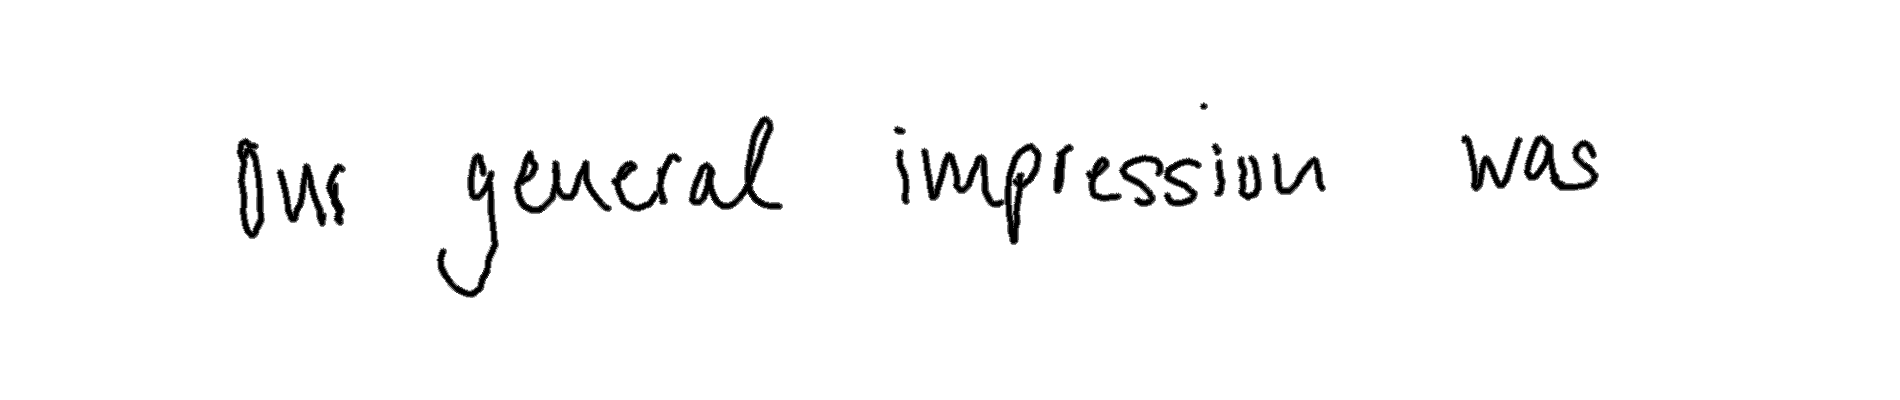 Our general impression was